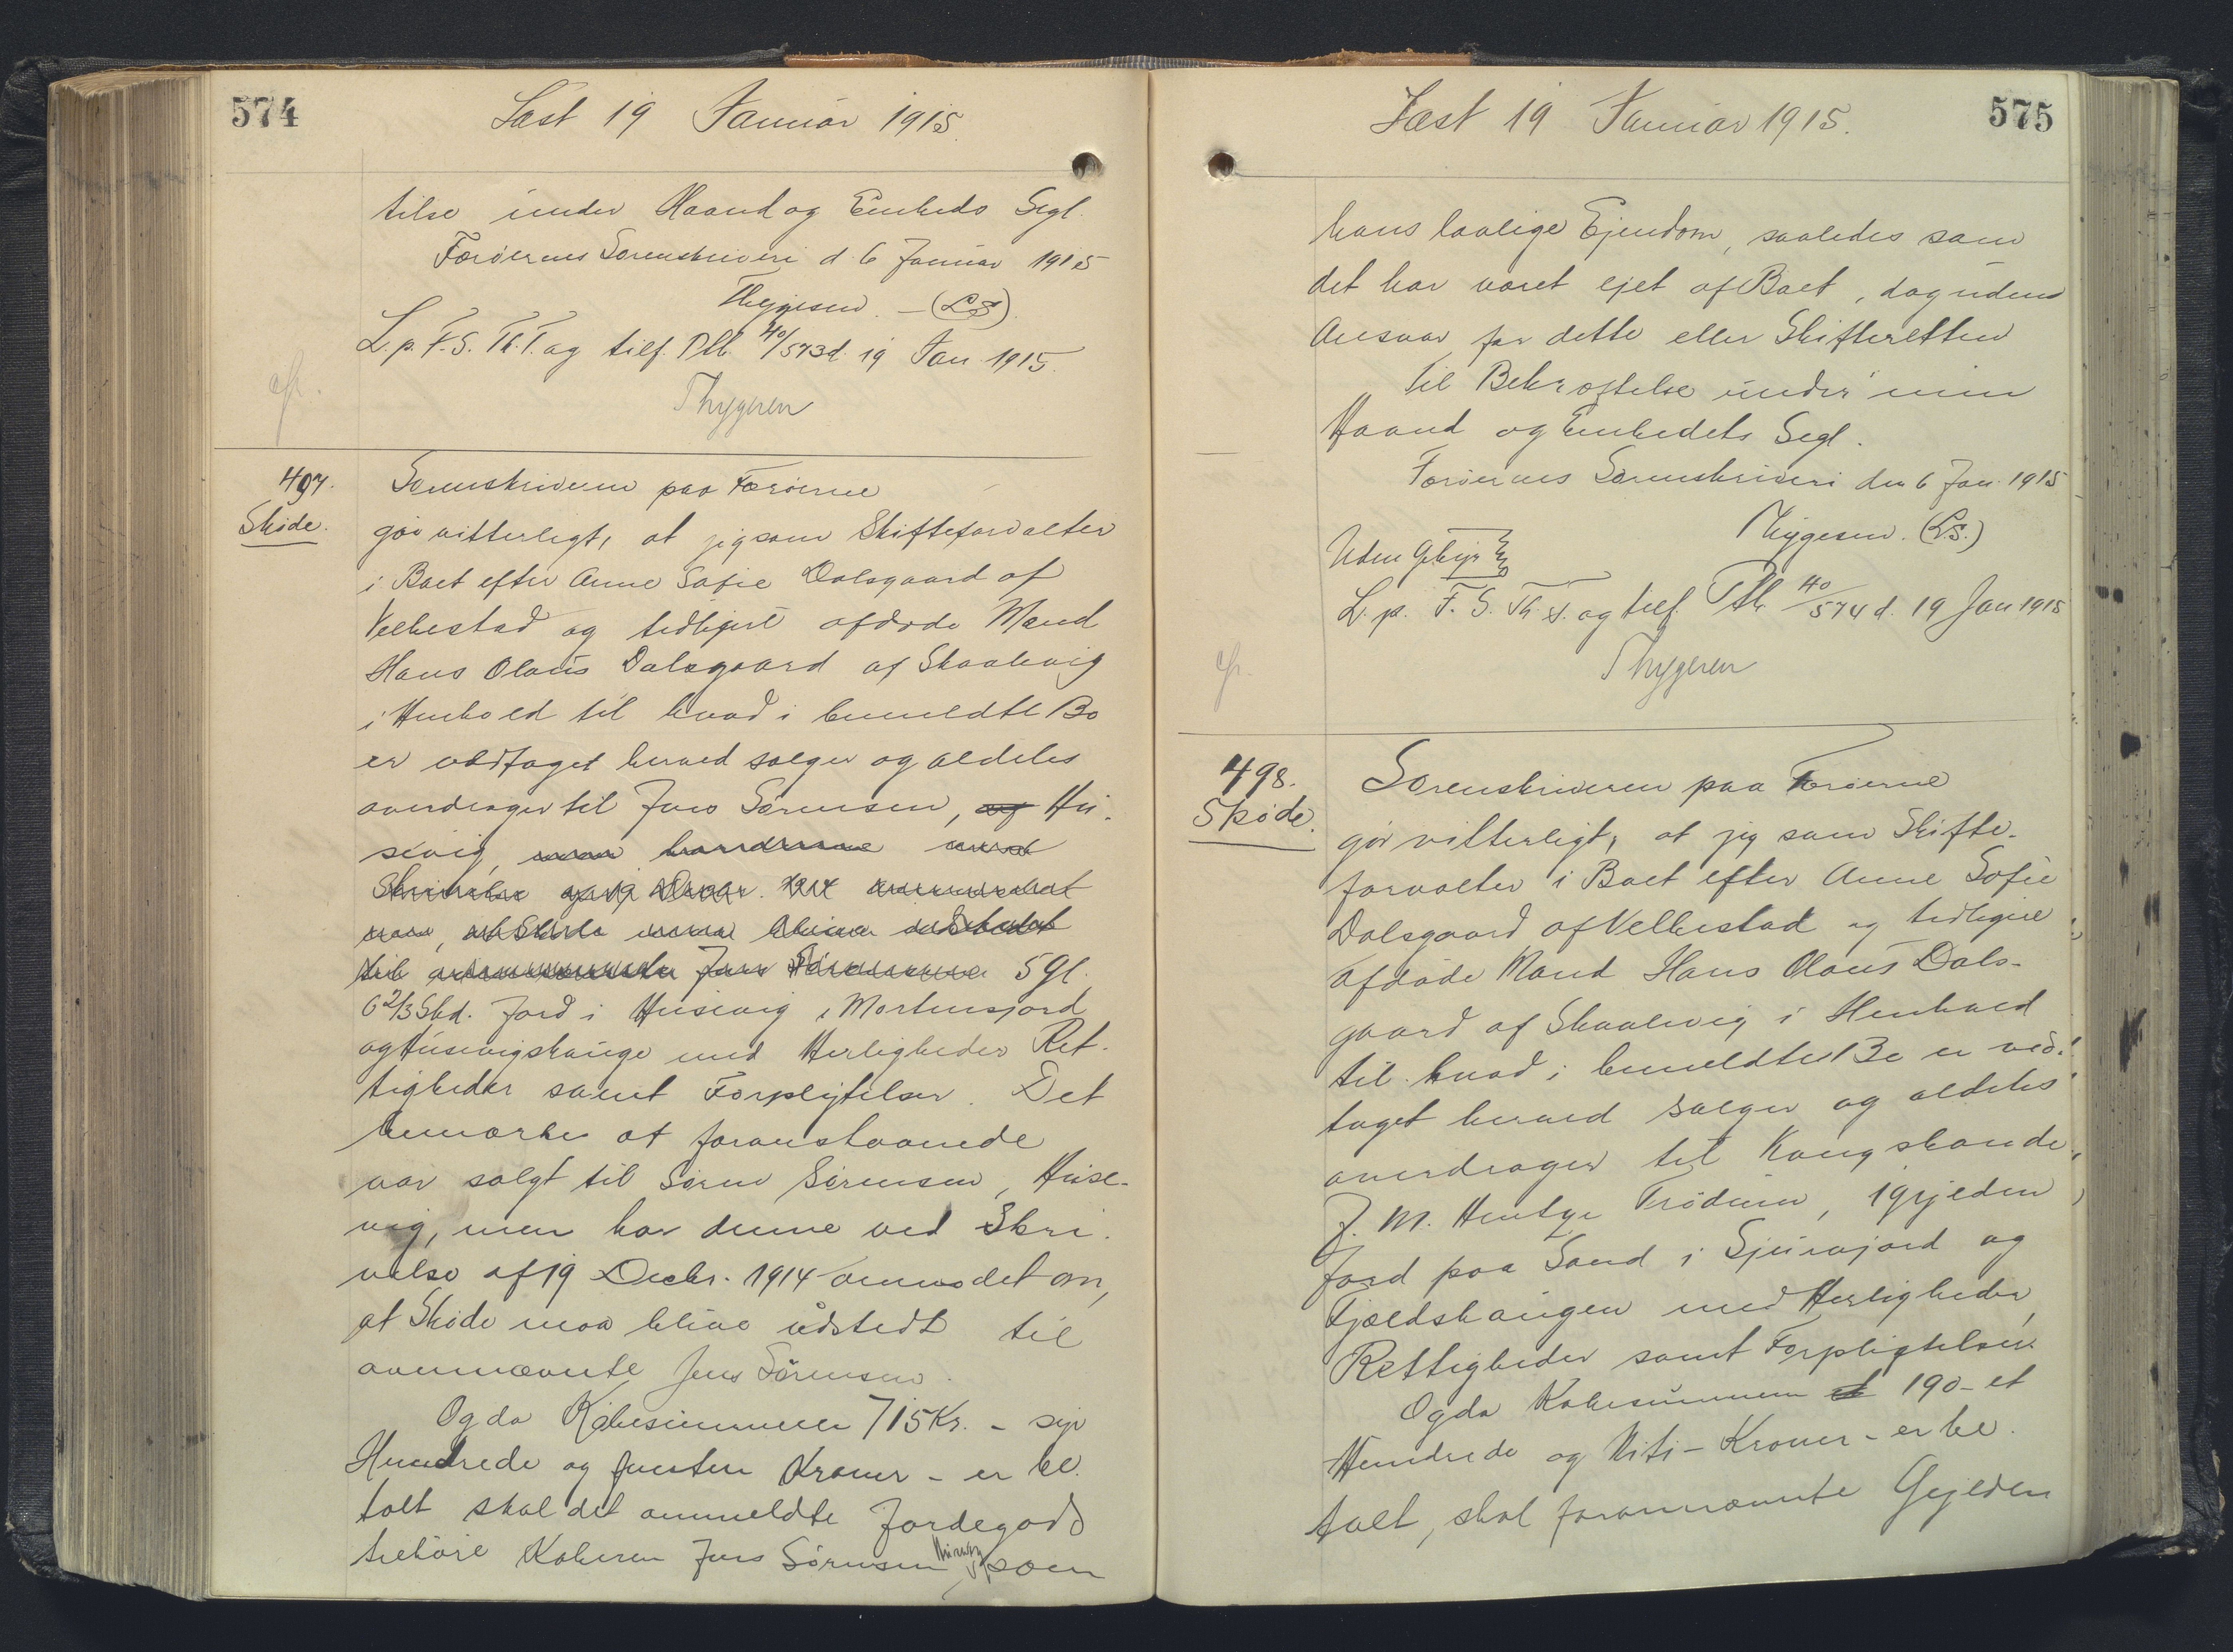 574
Læst 19 Januar 1915.
telse under Haand og Embeds Segl.
Færøernes Sorenskriveri d. 6 Januar 1915
Thygesen. – (LS).
L. p. F. S. Th. T. og tilf. Ptb. 40/573 d. 19 Jan. 1915.
cfr.
Thygesen
497.
Skøde.
Sorenskriveren paa Færøerne
gør vitterligt, at jeg som Skifteforvalter
i Boet efter Anne Sofie Dalsgaard af
Velbestad og tidligere afdøde Mand
Hans Olaus Dalsgaard af Skaalevig
i Henhold til hvad i bemeldte Bo
er vedtaget herved sælger og aldeles
overdrager til Jens Sørensen, af Hu-
sevig,
Skrivelse af 19 Decbr. 1914
om, at Skøde maa blive udstedt
til Jens Sørensen 5 Gl.
6 2/3 Skd. Jord i Husevig i Mortensjord
og Husevigshauge med Herligheder Ret-
tigheder samt Forpligtelser. Det
bemærkes at foranstaaende
var solgt til Søren Sørensen, Huse-
vig, men har denne ved Skri-
velse af 19 Decbr. 1914 anmodet om,
at Skøde maa blive udstedt til
ovennævnte Jens Sørensen.
Og da Købesummen 715 Kr. – syv
Hundrede og femten Kroner – er be-
talt skal det ommeldte Jordegods
tilhøre Køberen Jens Sørensen Husevig som
575
Læst 19 Januar 1915.
hans lovlige Ejendom, saaledes som
det har været ejet af Boet, dog uden
Ansvar for dette eller Skifteretten
Til Bekræftelse under min
Haand og Embedets Segl.
Færøernes Sorenskriveri den 6 Jan. 1915
Thygesen. (LS.)
Uden Gebyr
L. p. F. S. Th. T. og tilf. Ptb. 40/574 d. 19 Jan 1915
cfr.
Thygesen
498.
Skøde.
Sorenskriveren paa Færøerne
gør vitterligt, at jeg som Skifte-
forvalter i Boet efter Anne Sofie
Dalsgaard af Velbestad og tidligere
afdøde Mand Hans Olaus Dals-
gaard af Skaalevig i Henhold
til hvad i bemeldte Bo er ved-
taget herved sælger og aldeles
overdrager til Kongsbonde
J. M. Hentze Trødum, 1 Gylden
Jord paa Sand i Sjeurajord og
Fjældshaugen med Herligheder,
Rettigheder samt Forpligtelser.
Og da Købesummen et 190 – et
Hundrede og Niti – Kroner – er be-
talt, skal forannævnte Gylden